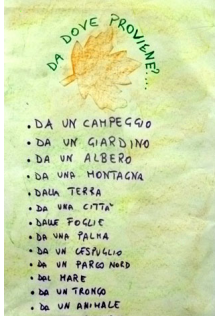 DA DOVE PROVIENE?....
• DA UN CAMPEGGIO
• DA UN GIARDINO
• DA UN ALBERO
• DA UNA MONTAGNA
• DALLA TERRA
• DA UNA CITTA'
• DALLE FOGLIE
• DA UNA PALMA
• DA UN CESPUGLIO
• DA UN PARCO NORD
• DAL MARE
• DA UN TRONCO
• DA UN ANIMALE